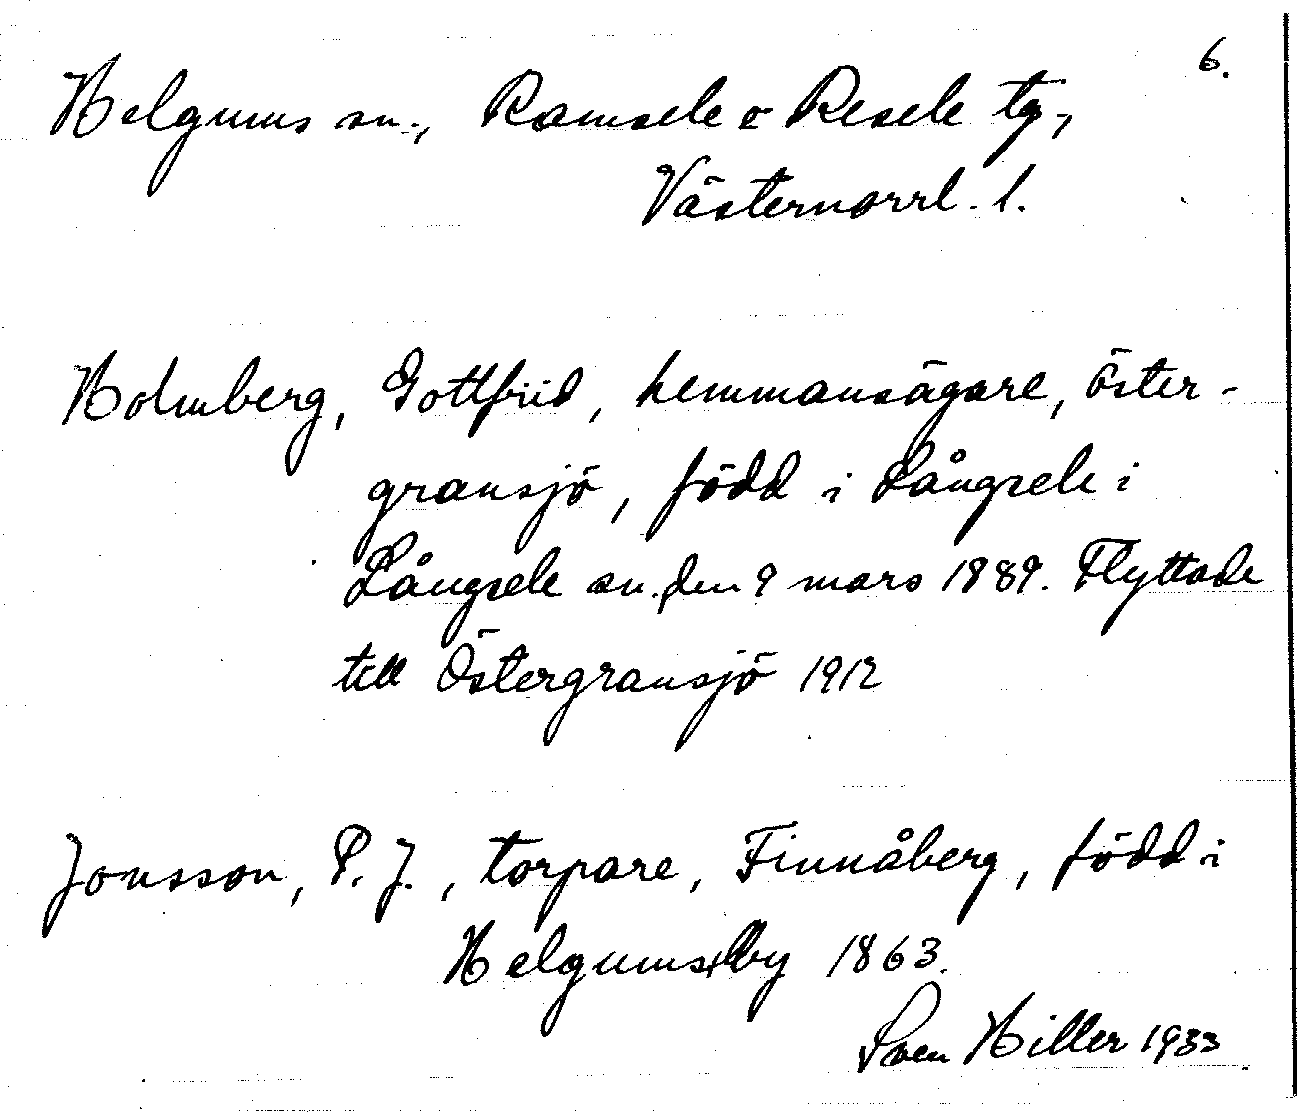 6.
Helgums sn., Ramsele o Resele tg,
Västernorrl. l.
Holmberg, Gottfrid, hemmansägare, Öster-
gransjö, född i Långsele i
Långsele sn. den 9 mars 1889. Flyttade
till Östergransjö 1912
Jonsson, P. J., torpare, Finnåberg, född i
Helgums by 1863.
Sven Hiller 1933